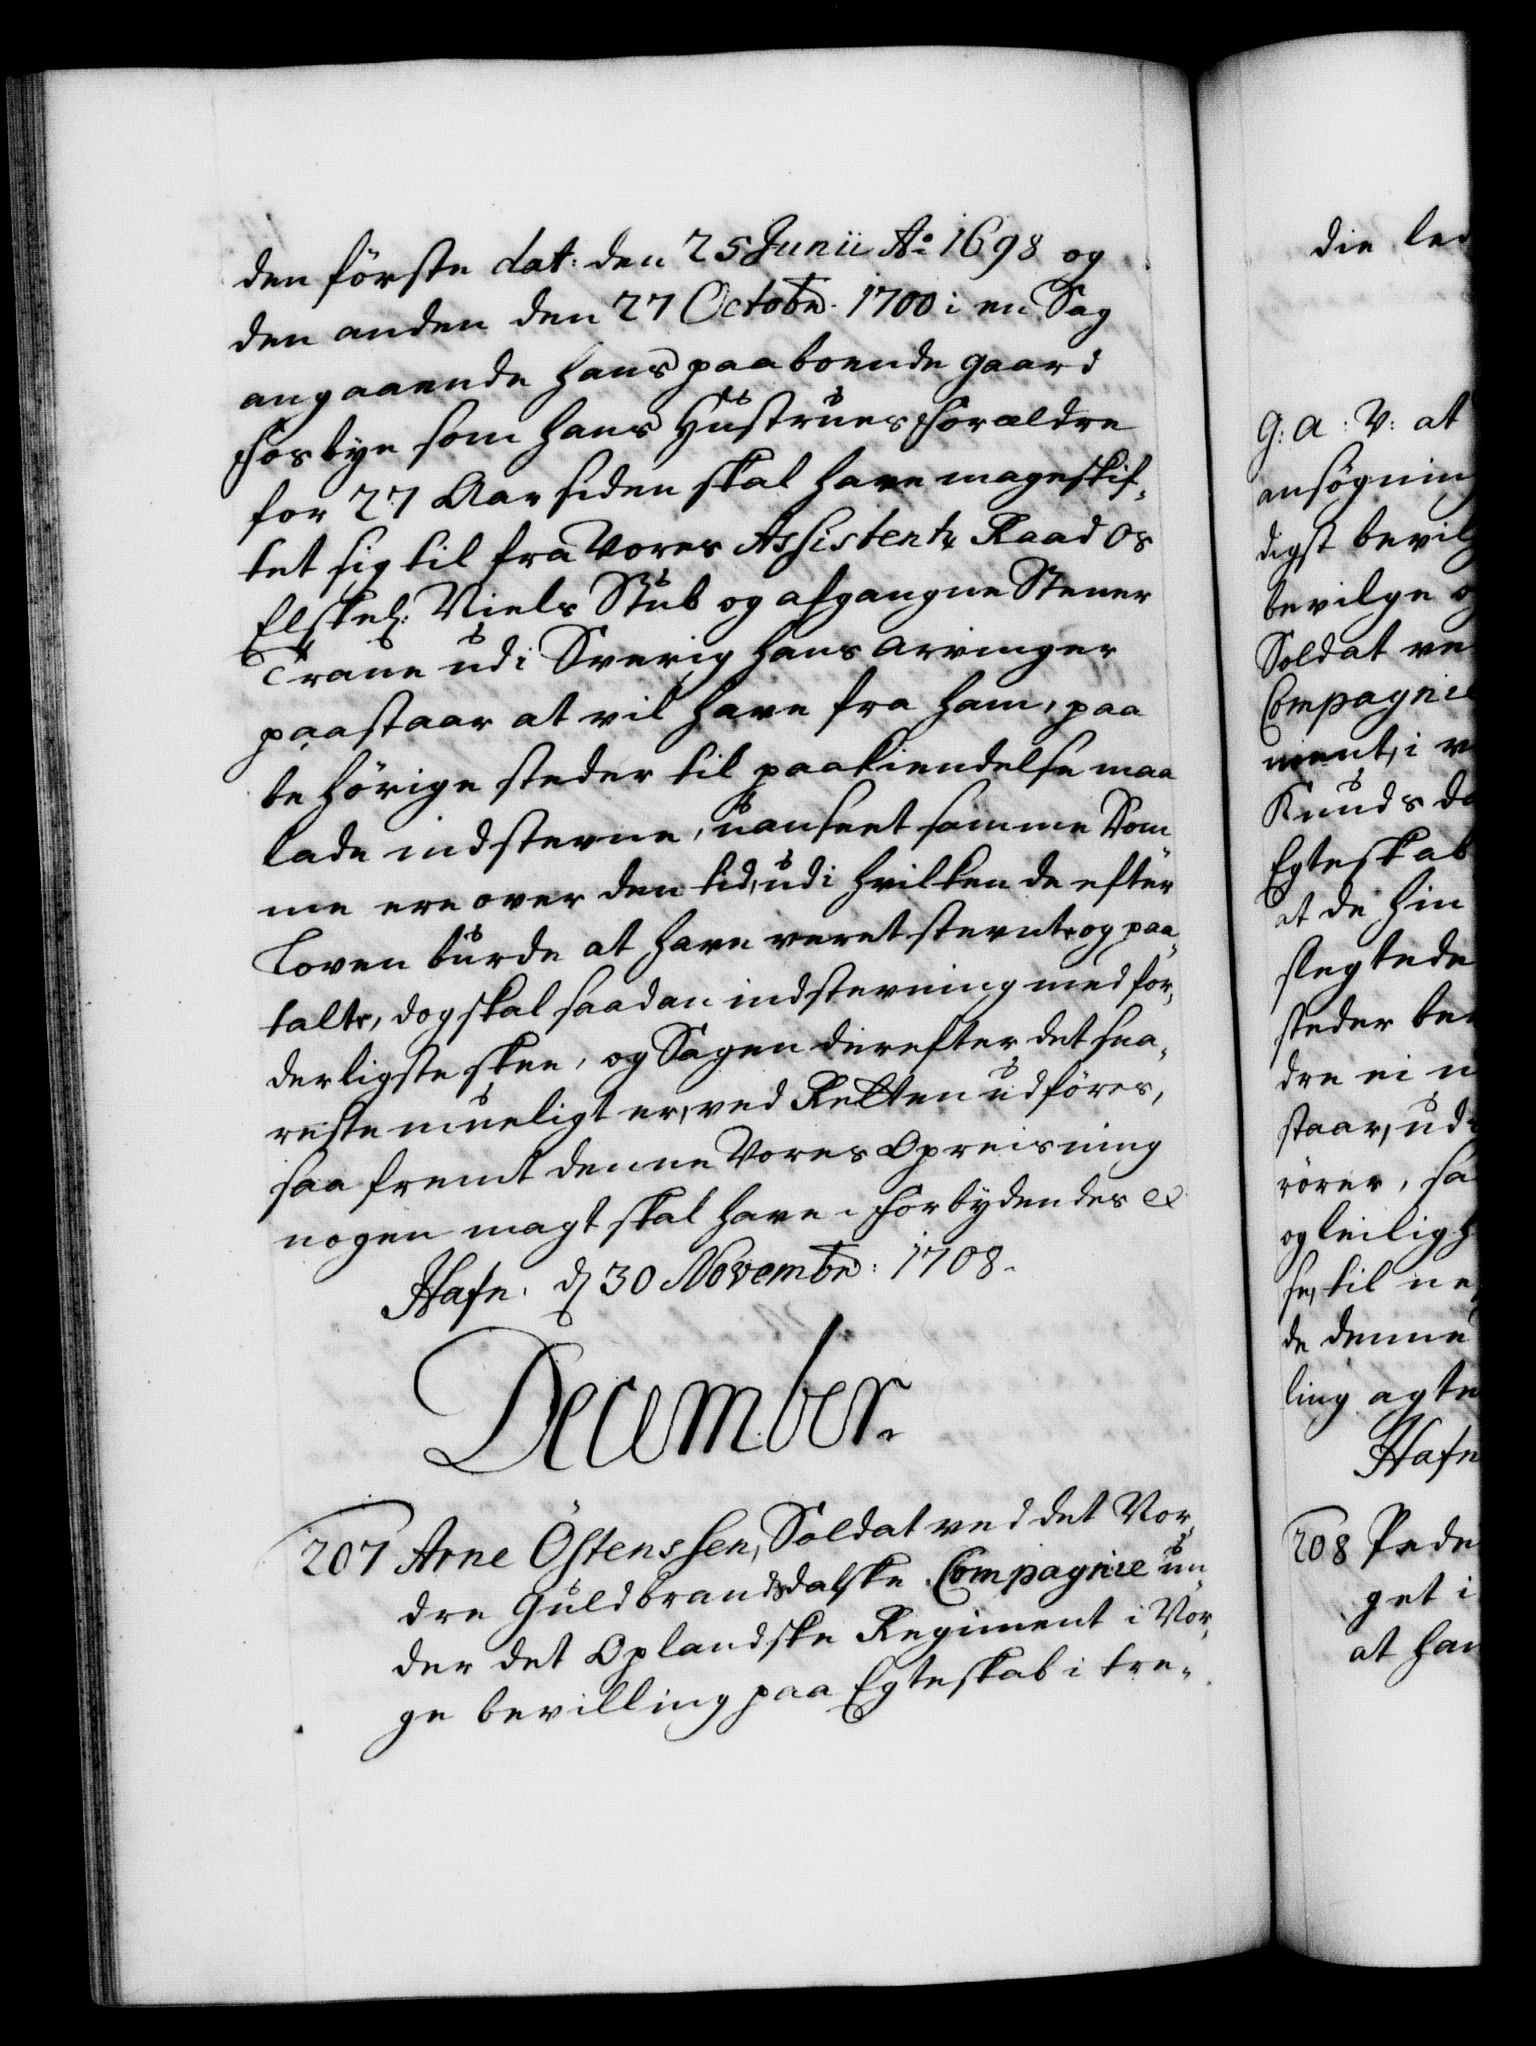 den förste dat: den 25 Junii Ao 1698 og
den anden den 27 Octobr: 1700 i en Sag
angaaende hans paaboende gaard
Fosbye som hans Hustrues Forældre
for 27 Aar siden skal have mageskif-
tet sig til fra Vores Assistentz Raad Os
Elskel: Niels Stub og afgangne Stener
Trane udi Sverig hans arvinger
paastaar at vil have fra ham, paa
behörige steder til paakiendelse maa
lade indstevne, uanseet samme Dom-
me ere over den tid, udi hvilken de efter
Loven burde at have veret stevnte og paa-
talte, dog skal saadan indstevning med for-
derligste skee, og Sagen derefter det sna-
reste mueligt er, ved Retten udföres,
saa fremt denne Vores Opreisning
nogen magt skal have. Forbydendes &
Hafn. d 30 Novembr: 1708.
December.
207 Arne Östenssen, Soldat ved det Nor-
dre Guldbrandsdalske Compagnie un-
der det Oplandske Regiment i Nor-
ge bevilling paa Egteskab i tre-
die led
G: A: V: at
ansögning
digst bevilg
bevilge og
Soldat ve
Compagnie
ment, i
Knuds da
Egteskab
at de hin
slegtede
steder be
dre ei
staar, ud
rörer, sa
og leiligh
se, til ne
de denne
ling agte
Hafn
208 Pede
get i
at han